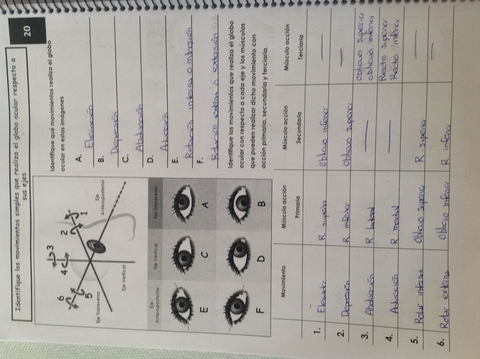 20
Identifique los movimientos simples que realiza el globo ocular respecto a
sus ejes
Identifique qué movimientos realiza el globo
ocular en estas imágenes
A. Elevación
B. Depresión
C. Abducción
D. Aducción
E. Rotación interna o intorsión
F. Rotación externa o extorsión
Identifique los movimientos que realiza el globo
ocular con respecto a cada eje y los músculos
que pueden realizar dicho movimiento con
acción primaria, secundaria y terciaria
6
5
4
3
2
1
Eje
Anteroposterior
Eje Vertical
Eje transverso
Eje
Anteroposterior
Eje Vertical
Eje transverso
E
C
A
F
D
B
Movimiento
Músculo acción
Primaria
Músculo acción
Secundaria
Músculo acción
Terciaria
1. Elevación R superior Oblicuo inferior
2. Depresión R inferior Oblicuo superior
3. Abducción R lateral Oblicuo superior
Oblicuo inferior
4. Aducción R medial Recto superior
Recto inferior
5. Rotar interna Oblicuo superior R superior
6. Rotar externa Oblicuo inferior R inferior